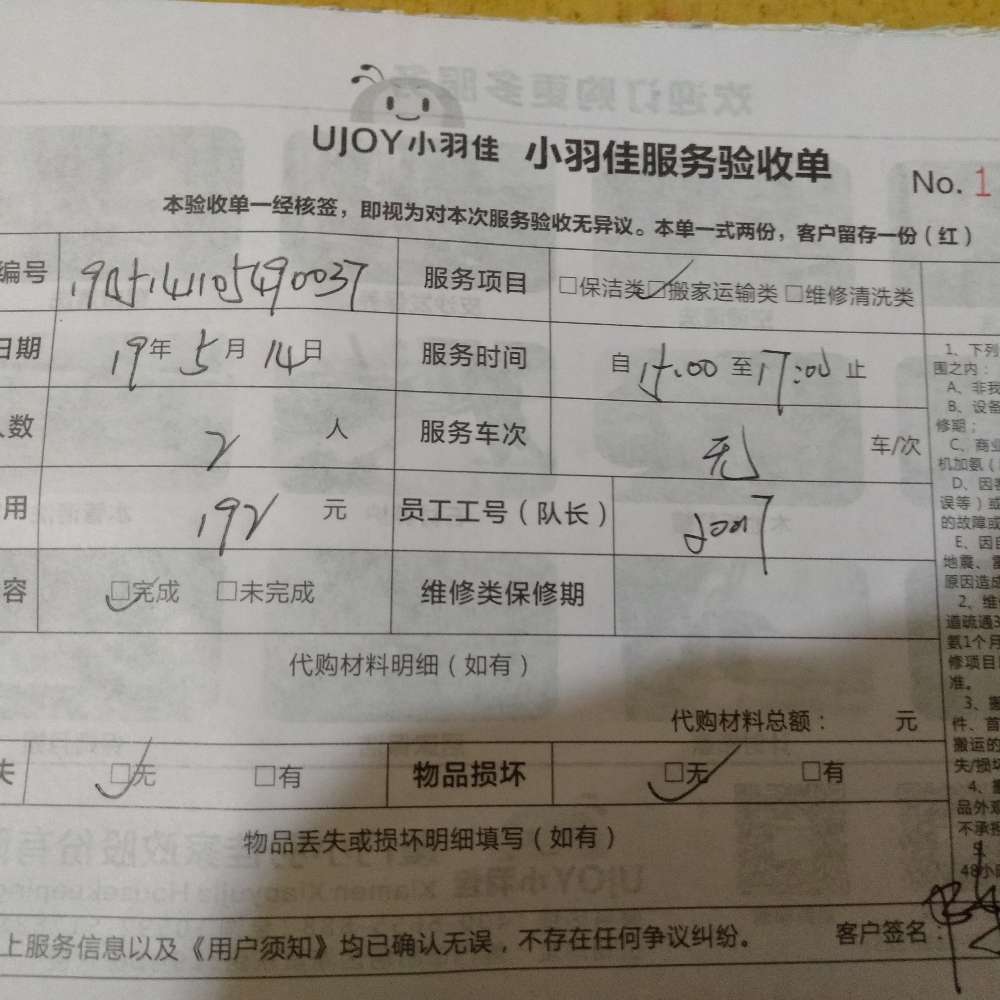 UJOY小羽佳 小羽佳服务验收单
No. 1
本验收单一经核签，即视为对本次服务验收无异议。本单一式两份，客户留存一份（红）
编号 服务项目 □保洁类 □搬家运输类 □维修清洗类
日期 19年 5月 14日 服务时间 自 15:00 至 17:00 止
人数 2 人 服务车次 无 车/次
用 192 元 员工工号（队长）
容 □完成 □未完成 维修类保修期
代购材料明细（如有）
代购材料总额： 元
失 □无 □有 物品损坏 □无 □有
物品丢失或损坏明细填写（如有）
上服务信息以及《用户须知》均已确认无误，不存在任何争议纠纷。 客户签名：
1、下列
围之内：
A、非我
B、设备
修期；
C、商业
机加氨（
D、因客
误等）或
的故障或
E、因自
地震、雷
原因造成
2、维
道疏通3
氨1个月
修项目
准。
3、搬
件、首
搬运的
失/损坏
4、搬
品外观
不承担
5
48小时